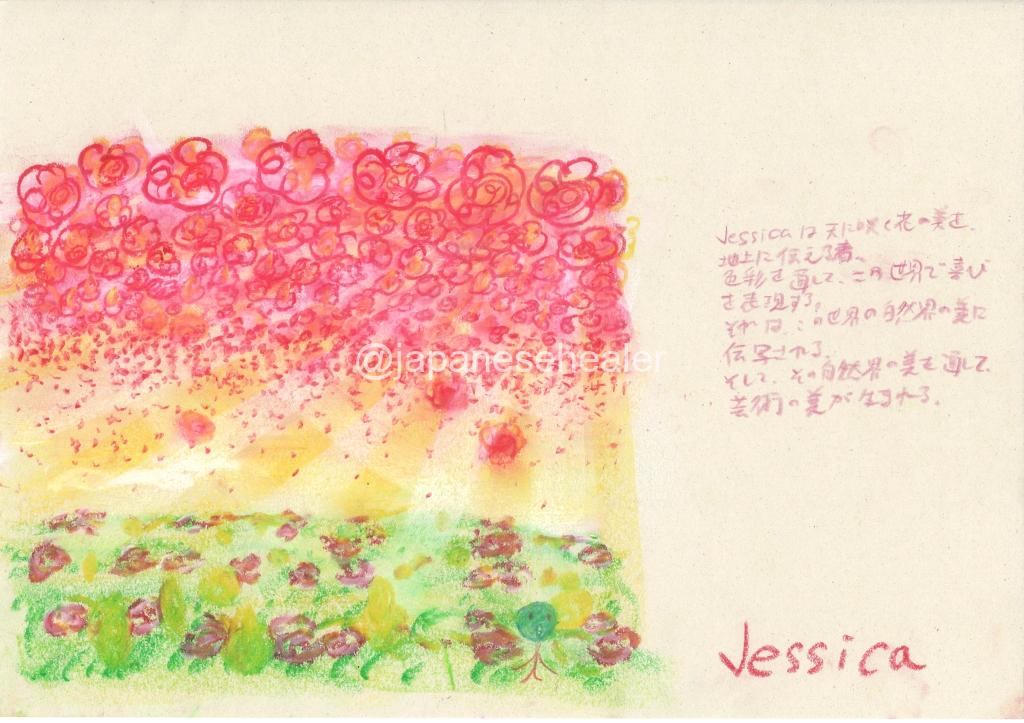 Jessicaは天に咲く花の美を、
地上に伝える者。
色彩を通して、この世界で喜び
を表現する。
それは、この世界の自然界の美に
伝写される。
そして、その自然界の美を通して、
芸術の美が生まれる。
@japanesehealer
Jessica